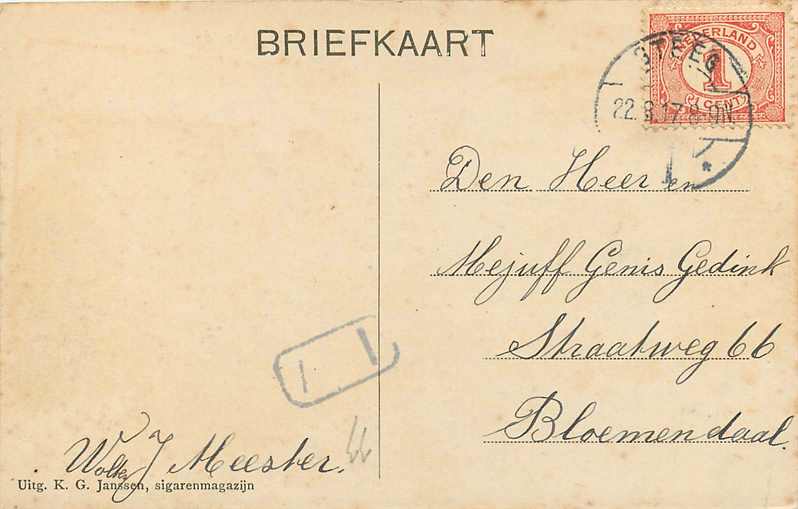 BRIEFKAART
NEDERLAND
1
1 CENT
STEEG
22.8.17.8-9N
Den Heer en
Mejuff Genis Gedink
Straatweg 66
Bloemendaal.
J Meester.
Uitg. K. G. Janssen, sigarenmagazijn